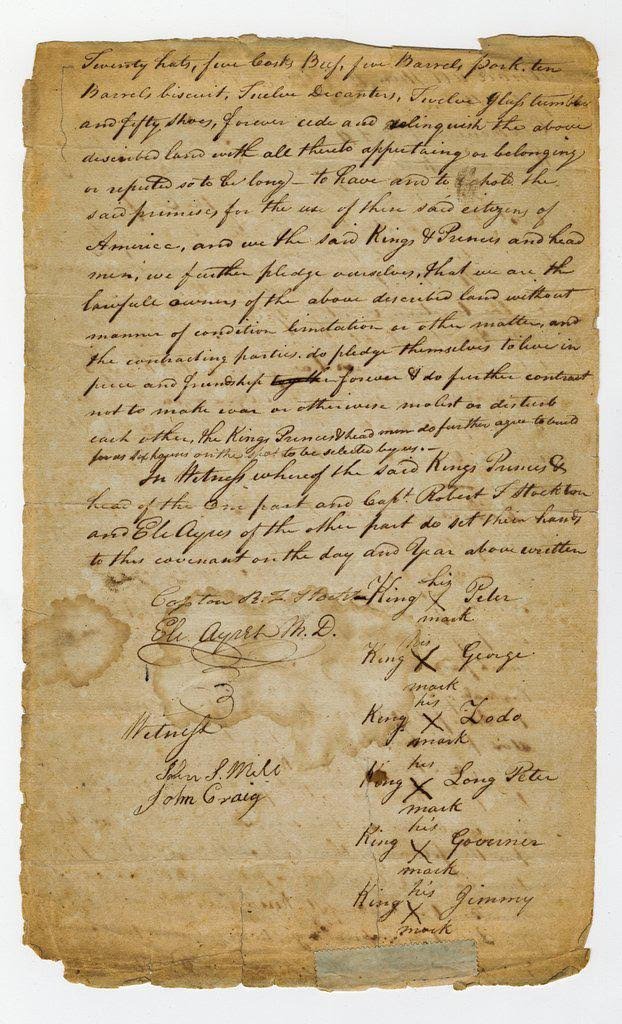 Twenty hats, five Casks Beef, five Barrels pork, ten
Barrels biscuit, Twelve Decanters, Twelve Glass tumblers
and fifty shoes, forever cede and relinquish the above
described land with all thereto appertaining or belonging
or reputed so to be long – to have and to hold the
said premises for the use of these said citizens of
America, and we the said Kings & Princes and head
men, we further pledge ourselves, that we are the
lawfull owners of the above described land without
manner of condition limitation or other matter, and
the contracting parties do pledge themselves to live in
peice and friendship forever & do further contract
not to make war or otherwise molist or disturb
each other, the Kings Princes & head men do further agree to build
for us six houses on the spot to be selected by us. –
In Witness whereof the said Kings Princes &
head of the One part and Capt. Robert F Stockton
and Ele Ayres of the other part do set their hands
to this covenant on the day and Year above written
Capton R. F. Stockton
Ele Ayres M. D.
Witness
John S. Mill
John Craig
his
King X Peter
mark
his
King X George
mark
his
King X Zodo
mark
his
King X Long Peter
mark
his
King X Governer
mark
his
King X Jimmy
mark